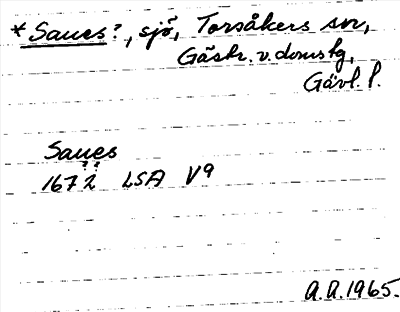 *Saues?, sjö, Torsåkers sn,
Gästr. v. domsg,
Gävl. l.
Saues
1672 LSA V9
A.A. 1965.